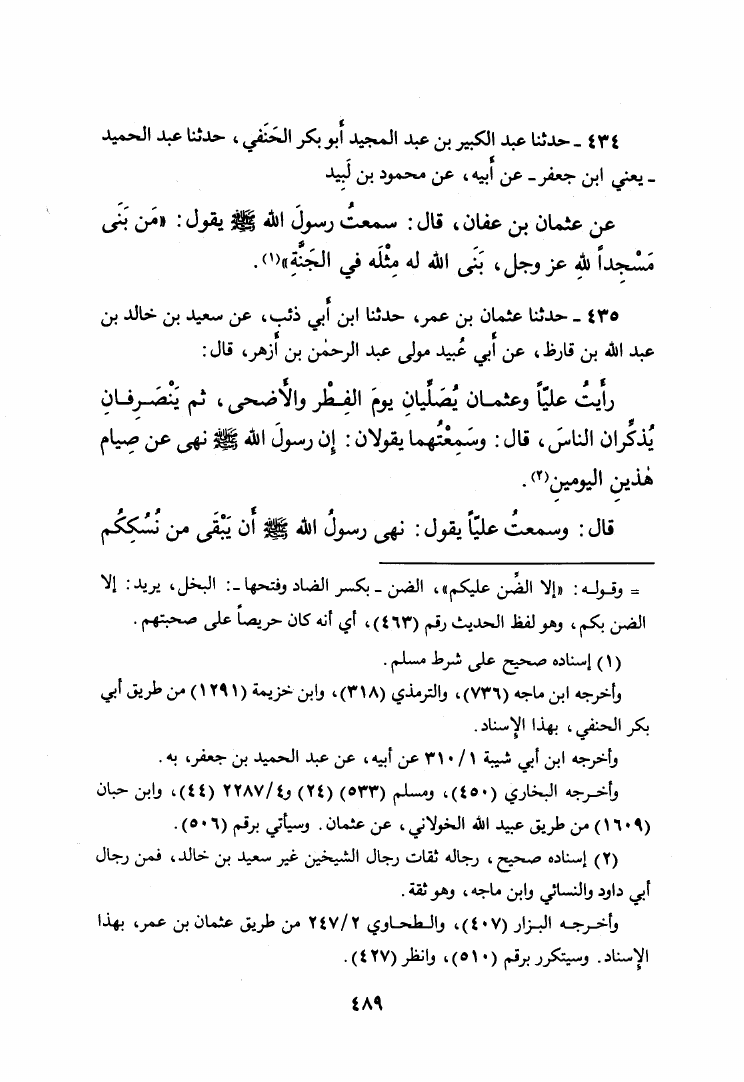 ٤٣٤ ـ حدثنا عبد الكبير بن عبد المجيد أَبو بكر الحَنَفي، حدثنا عبد الحميد
ـ يعني ابن جعفر ـ عن أَبيه، عن محمود بن لَبِيد
عن عثمان بن عفان، قال: سمعتُ رسولَ الله ﷺ يقول: «مَن بَنَى
مَسْجِداً للهِ عز وجل، بَنَى الله له مِثْلَه في الجَنَّةِ»(١).
٤٣٥ ـ حدثنا عثمان بن عمر، حدثنا ابن أَبي ذئب، عن سعيد بن خالد بن
عبد الله بن قارظ، عن أَبي عُبيد مولى عبد الرحمٰن بن أَزهر، قال:
رأَيتُ عليّاً وعثمـان يُصَلِّيانِ يومَ الفِـطْر والأَضحى، ثم يَنْصَـرِفـانِ
يُذكِّران الناسَ، قال: وسَمِعْتُهما يقولان: إِن رسولَ الله ﷺ نهى عن صِيام
هٰذينِ اليومينِ(٢).
قال: وسمعتُ عليّاً يقول: نهى رسولُ الله ﷺ أَن يَبْقَى من نُسُكِكُم
= وقـولـه: «إلا الضِّن عليكم»، الضن ـ بكسر الضاد وفتحها ـ: البخل، يريد: إلا
الضن بكم، وهو لفظ الحديث رقم (٤٦٣)، أي أنه كان حريصاً على صحبتهم.
(١) إسناده صحيح على شرط مسلم.
وأخرجه ابن ماجه (٧٣٦)، والترمذي (٣١٨)، وابن خزيمة (١٢٩١) من طريق أبي
بكر الحنفي، بهذا الإسناد.
وأخرجه ابن أبي شيبة ٣١٠/١ عن أبيه، عن عبد الحميد بن جعفر، به.
وأخـرجه البخاري (٤٥٠)، ومسلم (٥٣٣) (٢٤) و٢٢٨٧/٤ (٤٤)، وابن حبان
(١٦٠٩) من طريق عبيد الله الخولاني، عن عثمان. وسيأتي برقم (٥٠٦).
(٢) إسناده صحيح، رجاله ثقات رجال الشيخين غير سعيد بن خالد، فمن رجال
أبي داود والنسائي وابن ماجه، وهو ثقة.
وأخـرجـه البـزار (٤٠٧)، والـطحـاوي ٢٤٧/٢ من طريق عثمان بن عمر، بهذا
الإسناد. وسيتكرر برقم (٥١٠)، وانظر (٤٢٧).
٤٨٩